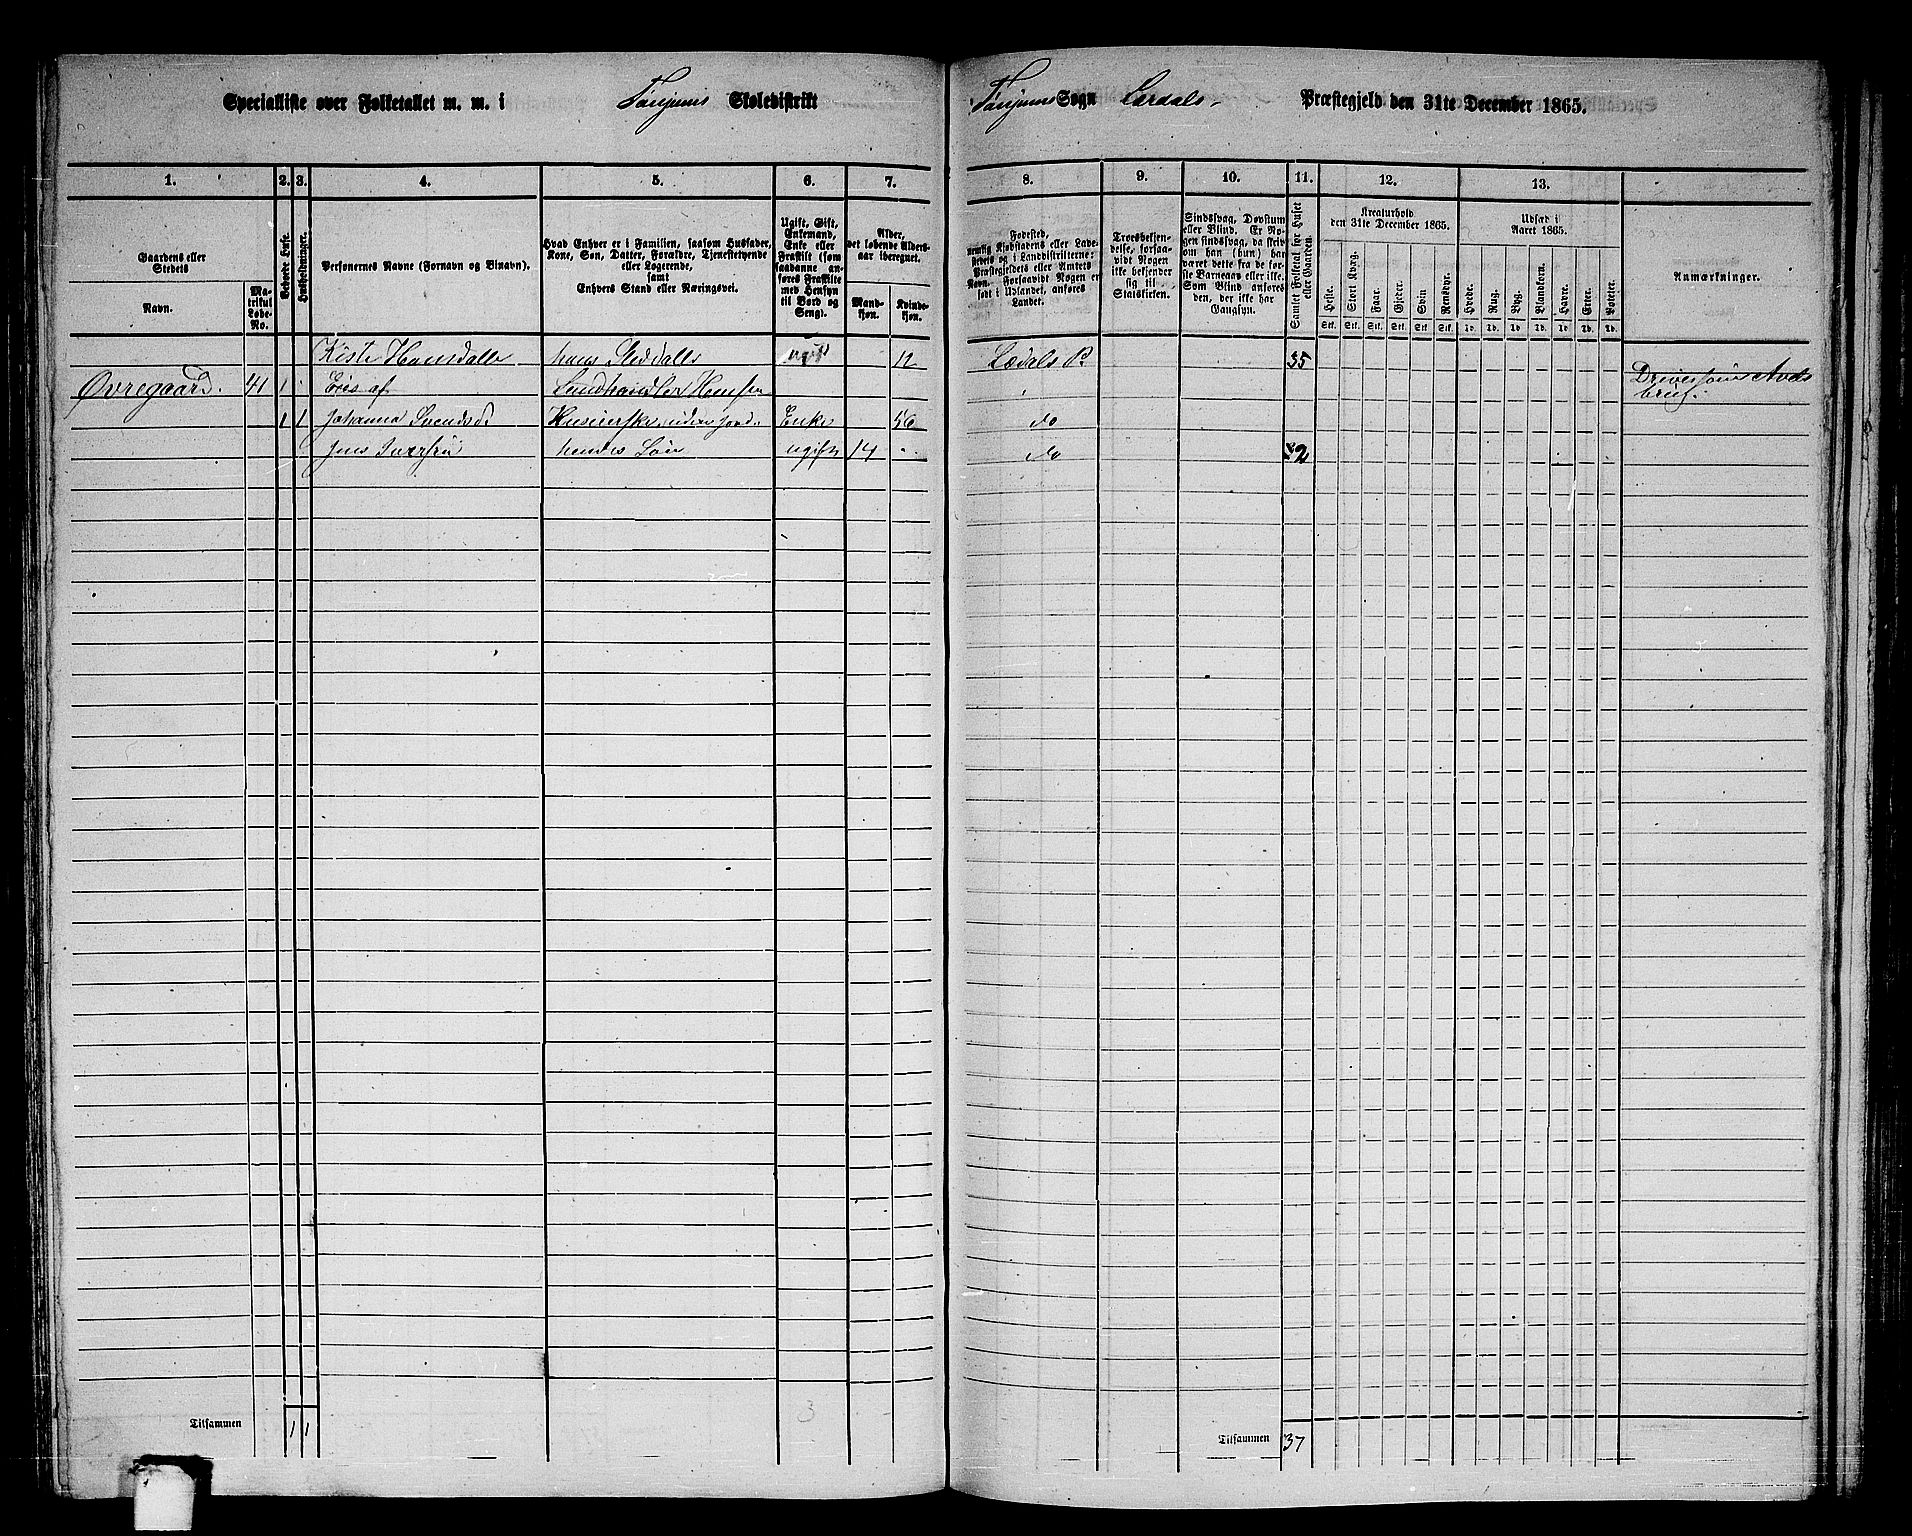 Specialliste over Folketallet m. m. i Tønjums Skoledistrikt Tønjums Sogn Lærdals Præstegjeld den 31te December 1865.
1. 2. 3. 4. 5. 6. 7. 8. 9. 10. 11. 12. 13.
Gaardens eller Stedets
Navn.
Matrikul Løbe-No.
Beboede Huse.
Husholdninger.
Personernes Navne (Fornavn og Binavn).
Hvad Enhver er i Familien, saasom Husfader,
Kone, Søn, Datter, Forældre, Tjenestetyende
eller Logerende,
samt
Enhvers Stand eller Næringsvei.
Ugift, Gift,
Enkemand,
Enke eller
Fraskilt (som
saadanne anføres
Fraskilte
med Hensyn
til Bord og
Seng).
Alder,
det løbende Alders-
aar iberegnet.
Mand-
kjøn.
Kvinde-
kjøn.
Fødested,
nemlig Kjøbstadens eller Lade-
stedets og i Landdistrikterne:
Præstegjeldets eller Amtets
Navn. Forsaavidt Nogen er
født i Udlandet, anføres
Landet.
Troesbekjen-
delse, forsaa-
vidt Nogen
ikke bekjender
sig til
Statskirken.
Sindssvag, Døvstum
eller Blind. Er No-
gen sindssvag, da skriv
om han (hun) har
været dette fra de før-
ste Barneaar eller ikke.
Som Blind anføres
den, der ikke har
Gangsyn.
Samlet Folketal for Huset
eller Gaarden.
Kreaturhold
den 31te December 1865.
Heste. Stort Kvæg. Faar. Gjeder. Svin Rensdyr.
Udsæd i
Aaret 1865.
Hvede. Rug. Byg. Blandkorn. Havre. Erter. Poteter.
Stk. Stk. Stk. Stk. Stk. Stk. Td. Td. Td. Td. Td Td. Td.
Anmærkninger.
12 Lærdals P. 35
Øvregaard. 41 1 Eies af Landhandler
1 1 Johanna Enke 56 do
Jens hendes Søn ugift 14 do 2
Tilsammen 1 1 3
Tilsammen 37